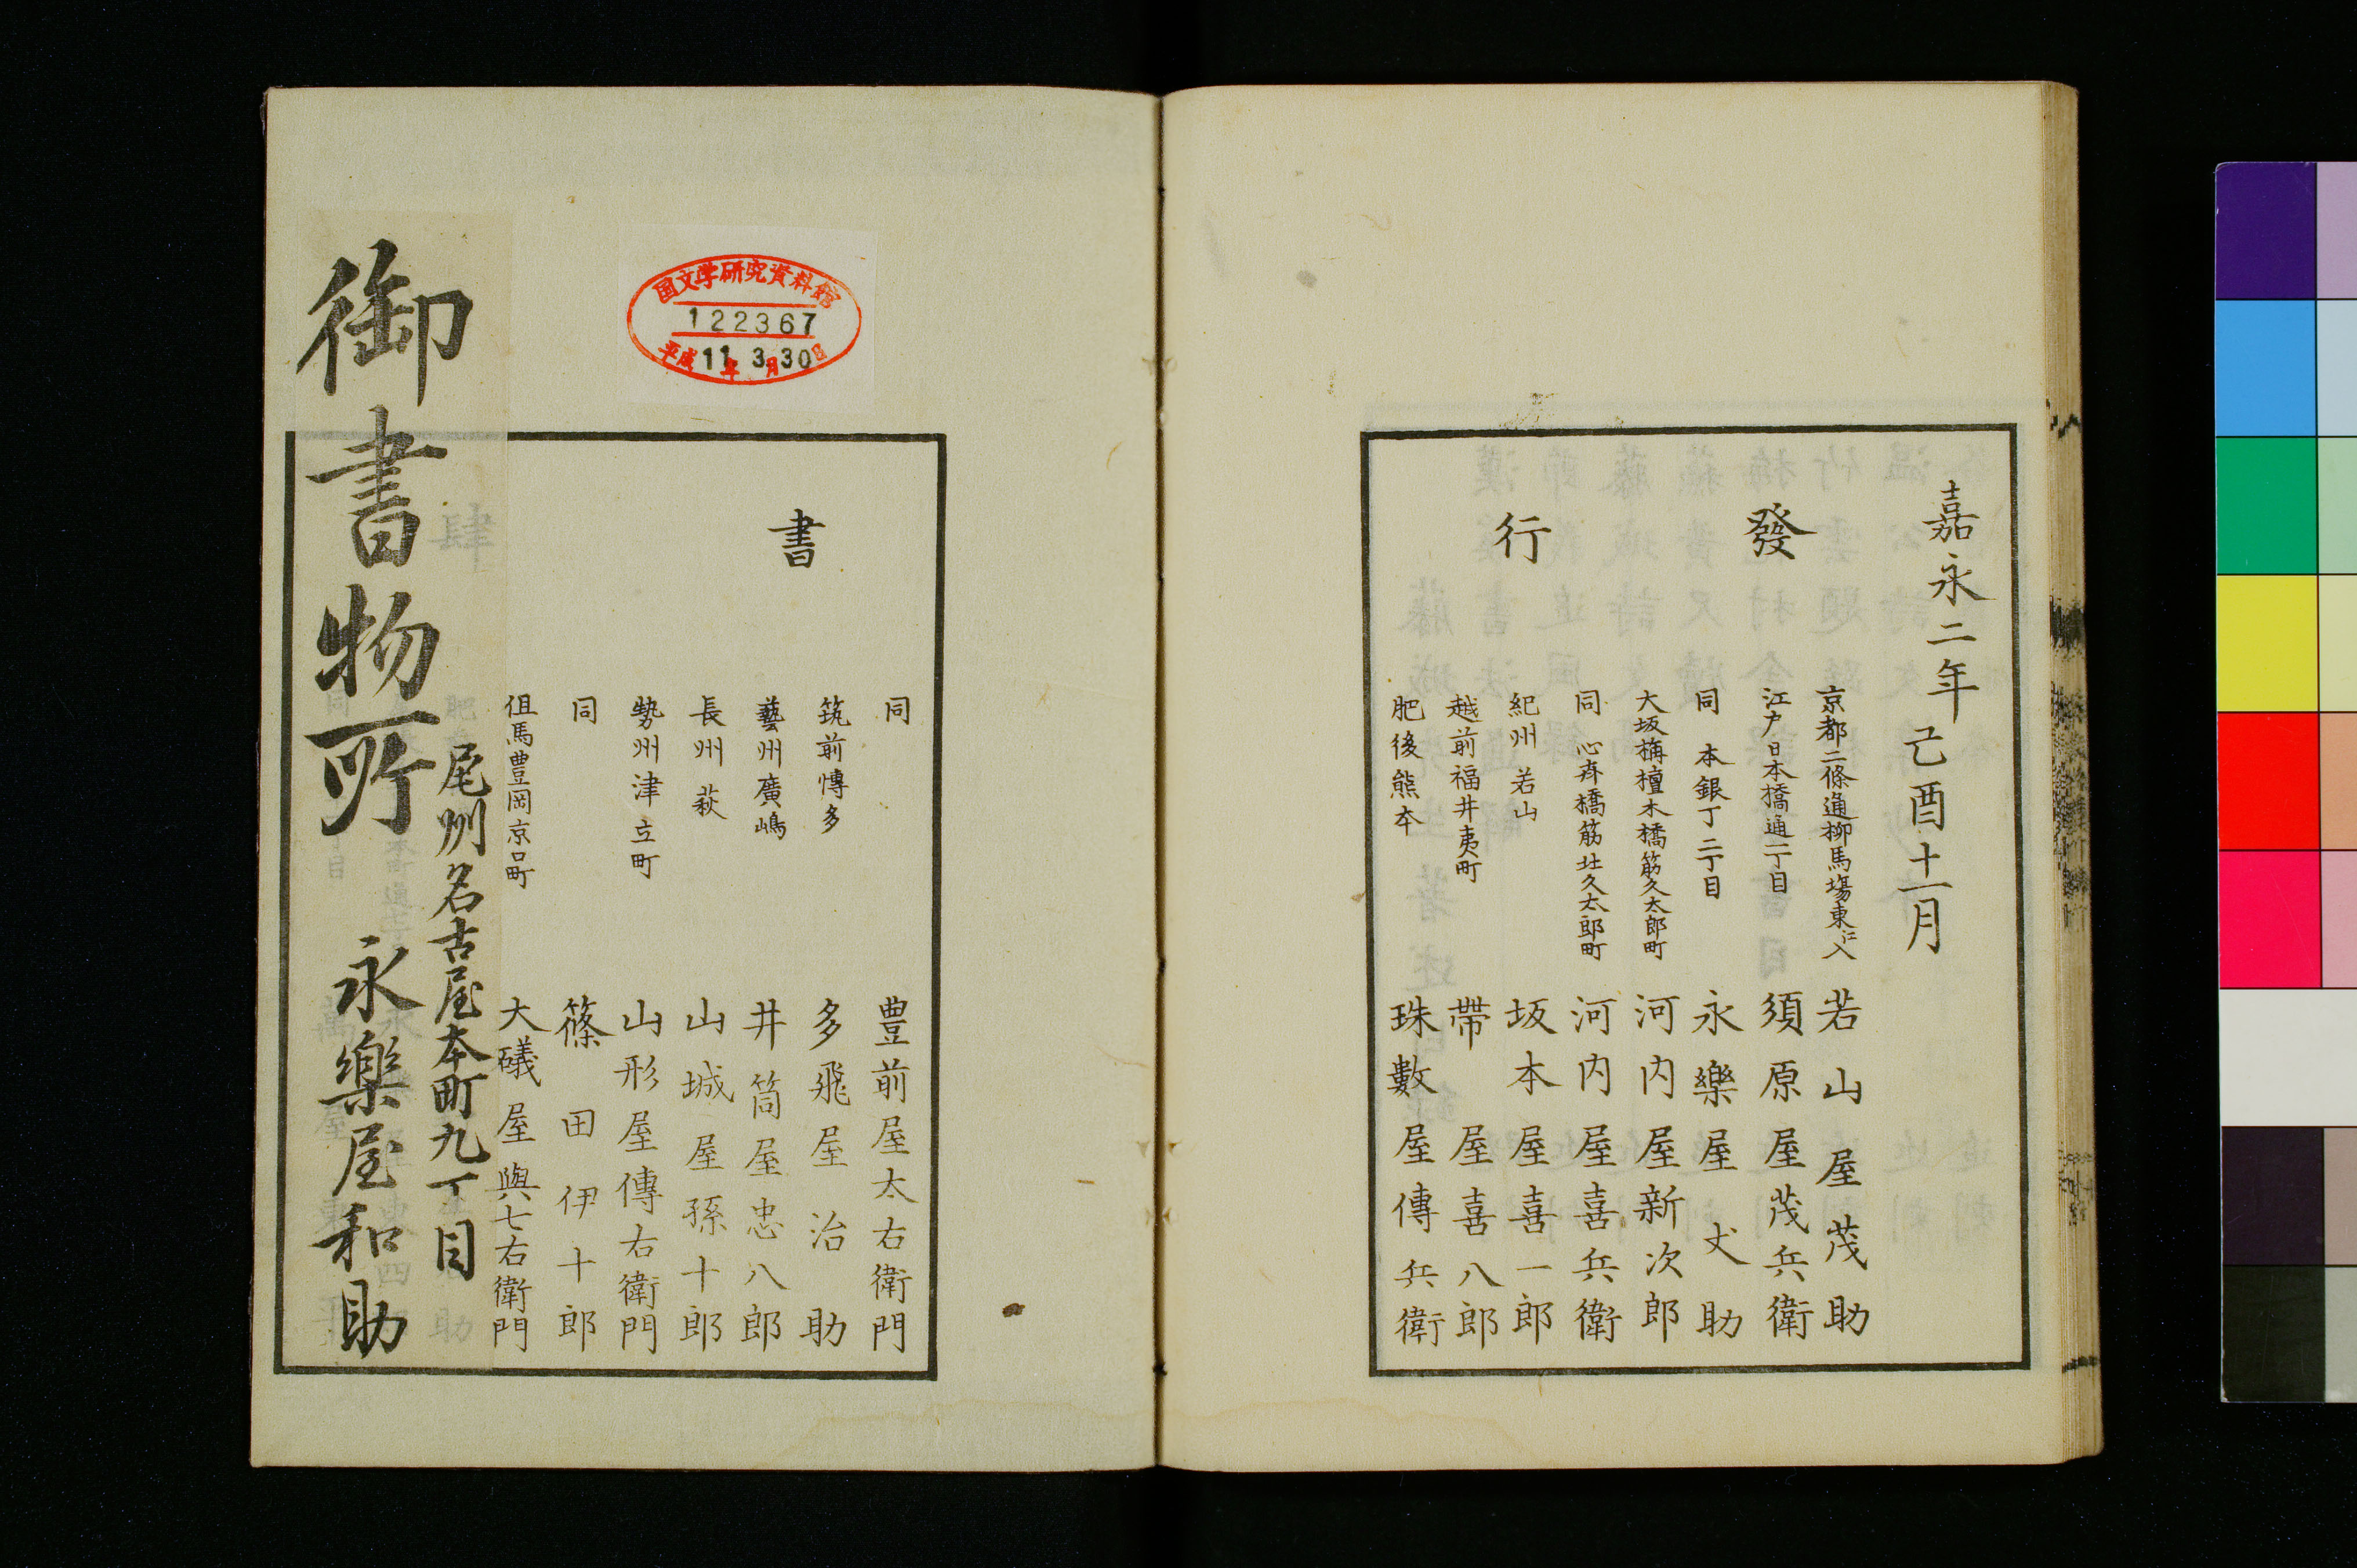 嘉永二年己酉十一月
發
行
京都二條通柳馬塲東江入 若山屋茂助
江戸日本橋通一丁目 須原屋茂兵衛
同 本銀丁二丁目 永樂屋丈助
大坂構檀木橋筋久太郎町 河内屋新次郎
同 心斉橋筋北久太郎町 河内屋喜兵衛
紀州若山 坂本屋喜一郎
越前福井夷町 帶屋喜八郎
肥後熊本 珠數屋傳兵衛
書
同 豊前屋太右衛門
筑前博多 多飛屋治助
藝州廣嶋 井筒屋忠八郎
長州萩 山城屋孫十郎
勢州津立町 山形屋傳右衛門
同 篠田伊十郎
但馬豊岡京口町 大礒屋與七右衛門
尾州名古屋本町九丁目
御書物所 永樂屋和助
国文学研究資料館
122367
平成11年3月30日